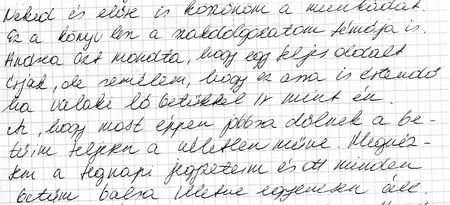 Neked és előre is köszönöm a munkádat.
Ez a könyv lesz a szakdolgozatom témája is.
Andrea azt mondta, hogy egy teljes oldalt
írjak, de remélem, hogy ez arra is érvendő
ha valaki kis betűkkel ír mint én.
Az, hogy most éppen jobbra dőlnek a be-
tűim teljesen a véletlen műve. Megnéz-
tem a tegnapi jegyzeteim és ott minden
betűm balra illetve egyenesen áll.